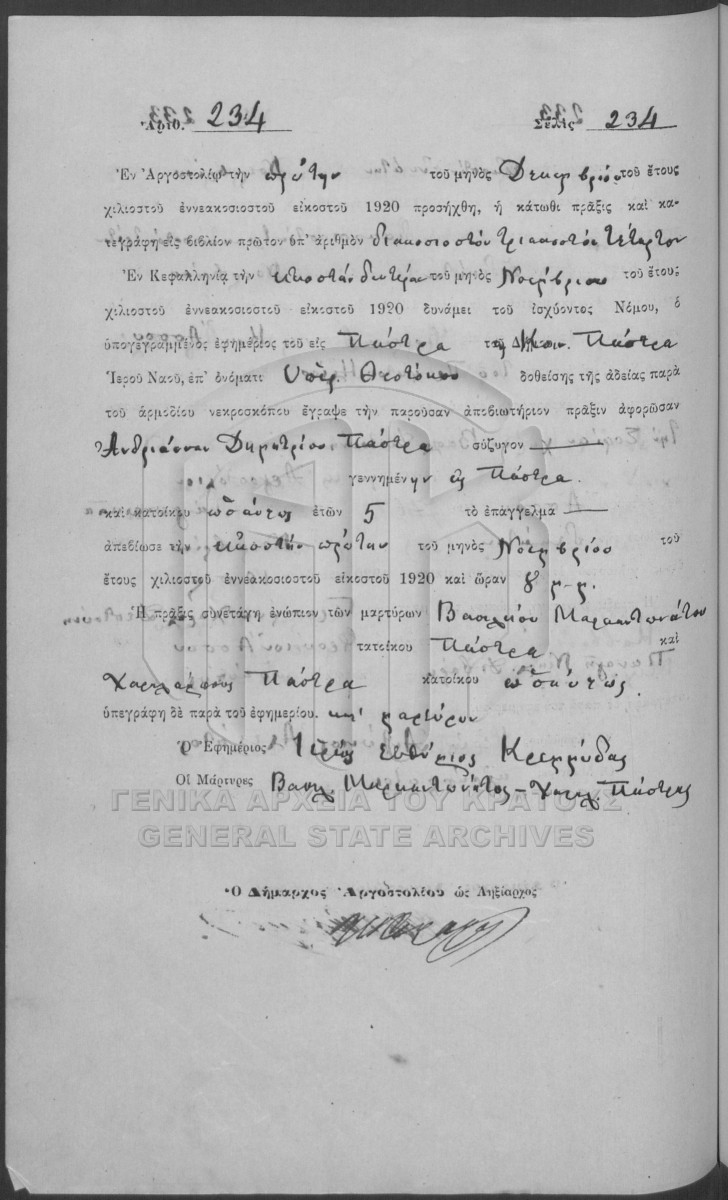 Ἀριθ. 234 Σελὶς 234
Ἐν Ἀργοστολίῳ τὴν πρώτην τοῦ μηνὸς Δεκεμβρίου τοῦ ἔτους
χιλιοστοῦ ἐννεακοσιοστοῦ εἰκοστοῦ 1920 προσήχθη, ἡ κάτωθι πρᾶξις καὶ κα-
τεγράφη εἰς βιβλίον πρῶτον ὑπ' ἀριθμὸν διακοσιοστὸν τριακοστὸν τέταρτον
Ἐν Κεφαλληνίᾳ τὴν εικοστὴν δευτέραν τοῦ μηνὸς Νοεμβρίου τοῦ ἔτους
χιλιοστοῦ ἐννεακοσιοστοῦ εἰκοστοῦ 1920 δυνάμει τοῦ ἰσχύοντος Νόμου, ὁ
ὑπογεγραμμένος ἐφημέριος τοῦ εἰς Πάστρα Πάστρα
Ἱεροῦ Ναοῦ, ἐπ' ὀνόματι Ὑπερ. Θεοτόκου δοθείσης τῆς ἀδείας παρὰ
τοῦ ἁρμοδίου νεκροσκόπου ἔγραψε τὴν παροῦσαν ἀποβιωτήριον πρᾶξιν ἀφορῶσαν
Δημητρίου Πάστρα σύζυγον
γεννημένην εἰς Πάστρα.
καὶ κατοίκου ὡσαύτως ἐτῶν 5 τὸ ἐπάγγελμα
ἀπεβίωσε τὴν εἰκοστὴν πρώτην τοῦ μηνὸς Νοεμβρίου τοῦ
ἔτους χιλιοστοῦ ἐννεακοσιοστοῦ εἰκοστοῦ 1920 καὶ ὥραν 8 μ.μ.
Ἡ πρᾶξις συνετάγη ἐνώπιον τῶν μαρτύρων Βασιλείου Μαρκαντωνάτου
τατοίκου Πάστρα καὶ
Χαραλάμπους Πάστρα κατοίκου ὡσαύτως.
ὑπεγράφη δὲ παρὰ τοῦ ἐφημερίου. καὶ μαρτύρων
Ὁ Ἐφημέριος Ἱερεὺς Εὐθύμιος Κρεμμύδας
Οἱ Μάρτυρες Βασιλ. Μαρκαντωνάτος - Χαραλ. Πάστρας
ΓΕΝΙΚΑ ΑΡΧΕΙΑ ΤΟΥ ΚΡΑΤΟΥΣ
GENERAL STATE ARCHIVES
Ὁ Δήμαρχος Ἀργοστολίου ὡς Ληξίαρχος